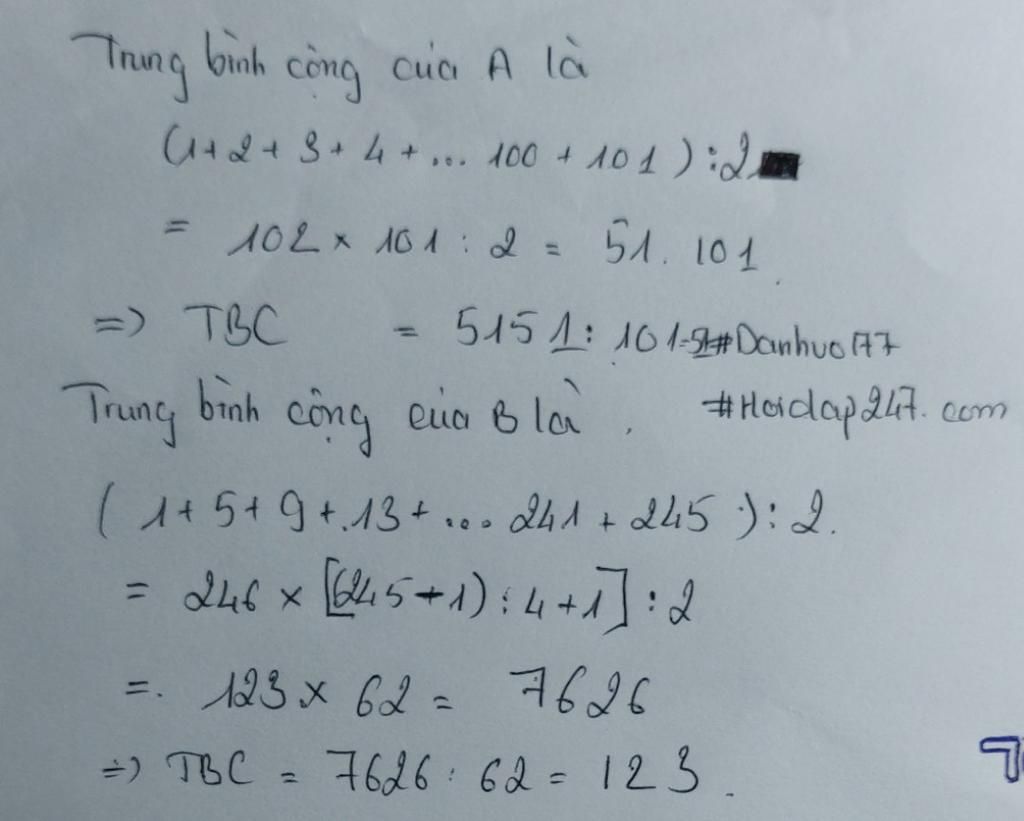 Trung bình cộng của A là
(1+2+3+4+... 100 + 101) : 2
= 102 × 101 : 2 = 51. 101
=> TBC = 5151 : 101 = 51 #Danhvo177
Trung bình cộng của B là .
#Hoidap247. com
(1+5+9+.13+... 241 + 245 ) : 2.
= 246 × [(245-1) : 4 + 1] : 2
=. 123 × 62 = 7626
=> TBC = 7626 : 62 = 123 .